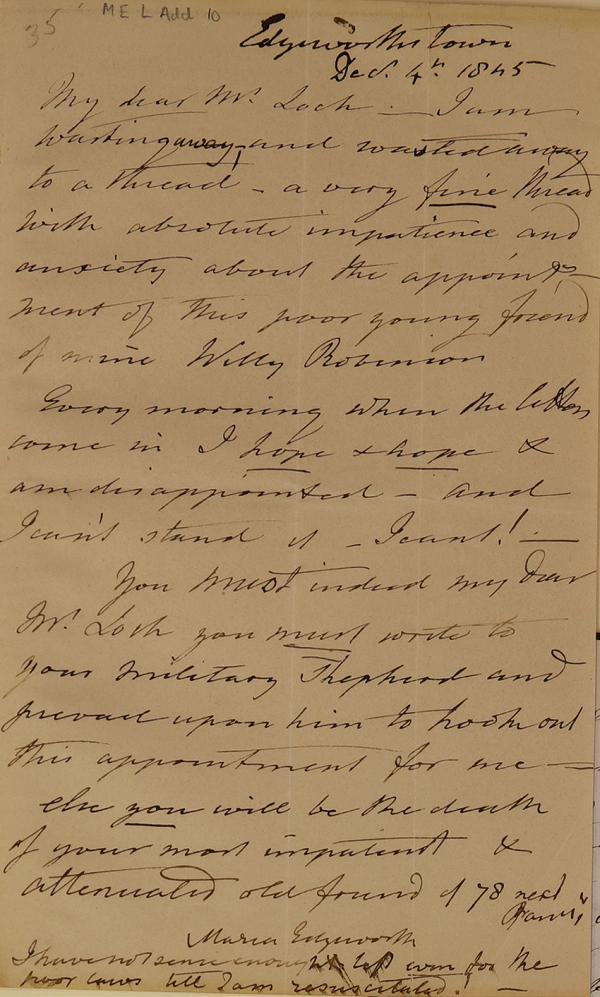 35 M E L Add 10
Edgeworthstown
Dec. 4th. 1845
My dear Mr. Loch — I am
wasting away, and wasted away
to a thread – a very fine thread
with absolute impatience and
anxiety about the appoint-
ment of this poor young friend
of mine Willy Robinson
Every morning when the letters
come in I hope & hope &
am disappointed – and
I can't stand it – I cant! —
You must indeed my dear
Mr. Loch you must write to
your military Shepherd and
prevail upon him to hook out
this appointment for me —
else you will be the death
of your most impatient &
attenuated old friend of 78 next
Jany
Maria Edgeworth
I have not sense enough left even for the
poor laws till I am resuscitated! —